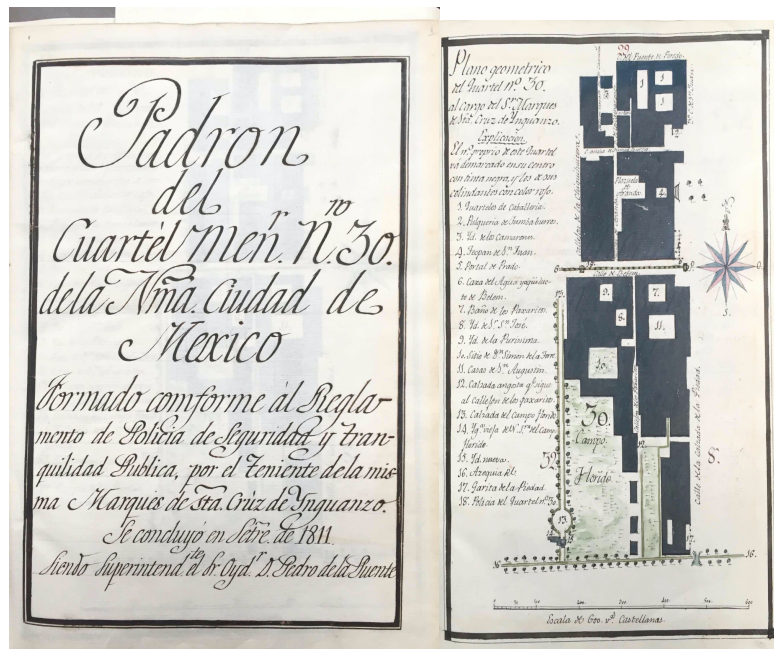 Padron
del
Cuartél Men.r N.ro 30.
dela Nm̃a. Ciudad de
Mexico
Formado comforme ál Regla-
mento de Policia de Seguridad y tran-
quilidad Publica, por el teniente dela mis-
ma Marques de Sta. Crúz de Ynguanzo.
Se concluyó en Setre. de 1811.
Siendo Superintend.te el Sr. Oyd.r D. Pedro de la Puente
Plano geometrico
del Quartel nº. 30.
al cargo del Sr. Marques
de Sta. Cruz de Ynguanzo.
Explicacion.
El nº. proprio de este Quartel
va demarcado en su centro
con tinta negra, y los de sus
colindantes con color rojo.
1. Quarteles de Caballeria.
2. Pulqueria de Tumba burros.
3. Yd. de los Camarones.
4. Tecpan de Sn. Juan.
5. Portal de Prado.
6. Caxa del Agua y aqüeduc-
to de Belem.
7. Baño de los Paxaritos.
8. Yd. de Sr. Sn. José.
9. Yd. de la Purisima.
10. Sitio de Dn. Simon de la Torre.
11. Casas de Sn. Augustin.
12. Calzada angosta q. sigue
al callejon de los paxaritos.
13. Calzada del Campo florido.
14. Yg.a vieja de N. Sra. del Campo
florido.
15. Yd. nueva.
16. Azequia Rl.
17. Garita de la Piedad.
18. Policia del Quartel nº. 30.
29
Plazuela
de
Arando
Calle de Belem
9.
7.
8.
11.
10.
30.
Campo
Florido
32.
8.
Calle de la Calzada de la Piedad.
13
16
16.
Escala de 600. vs. Castellanas.